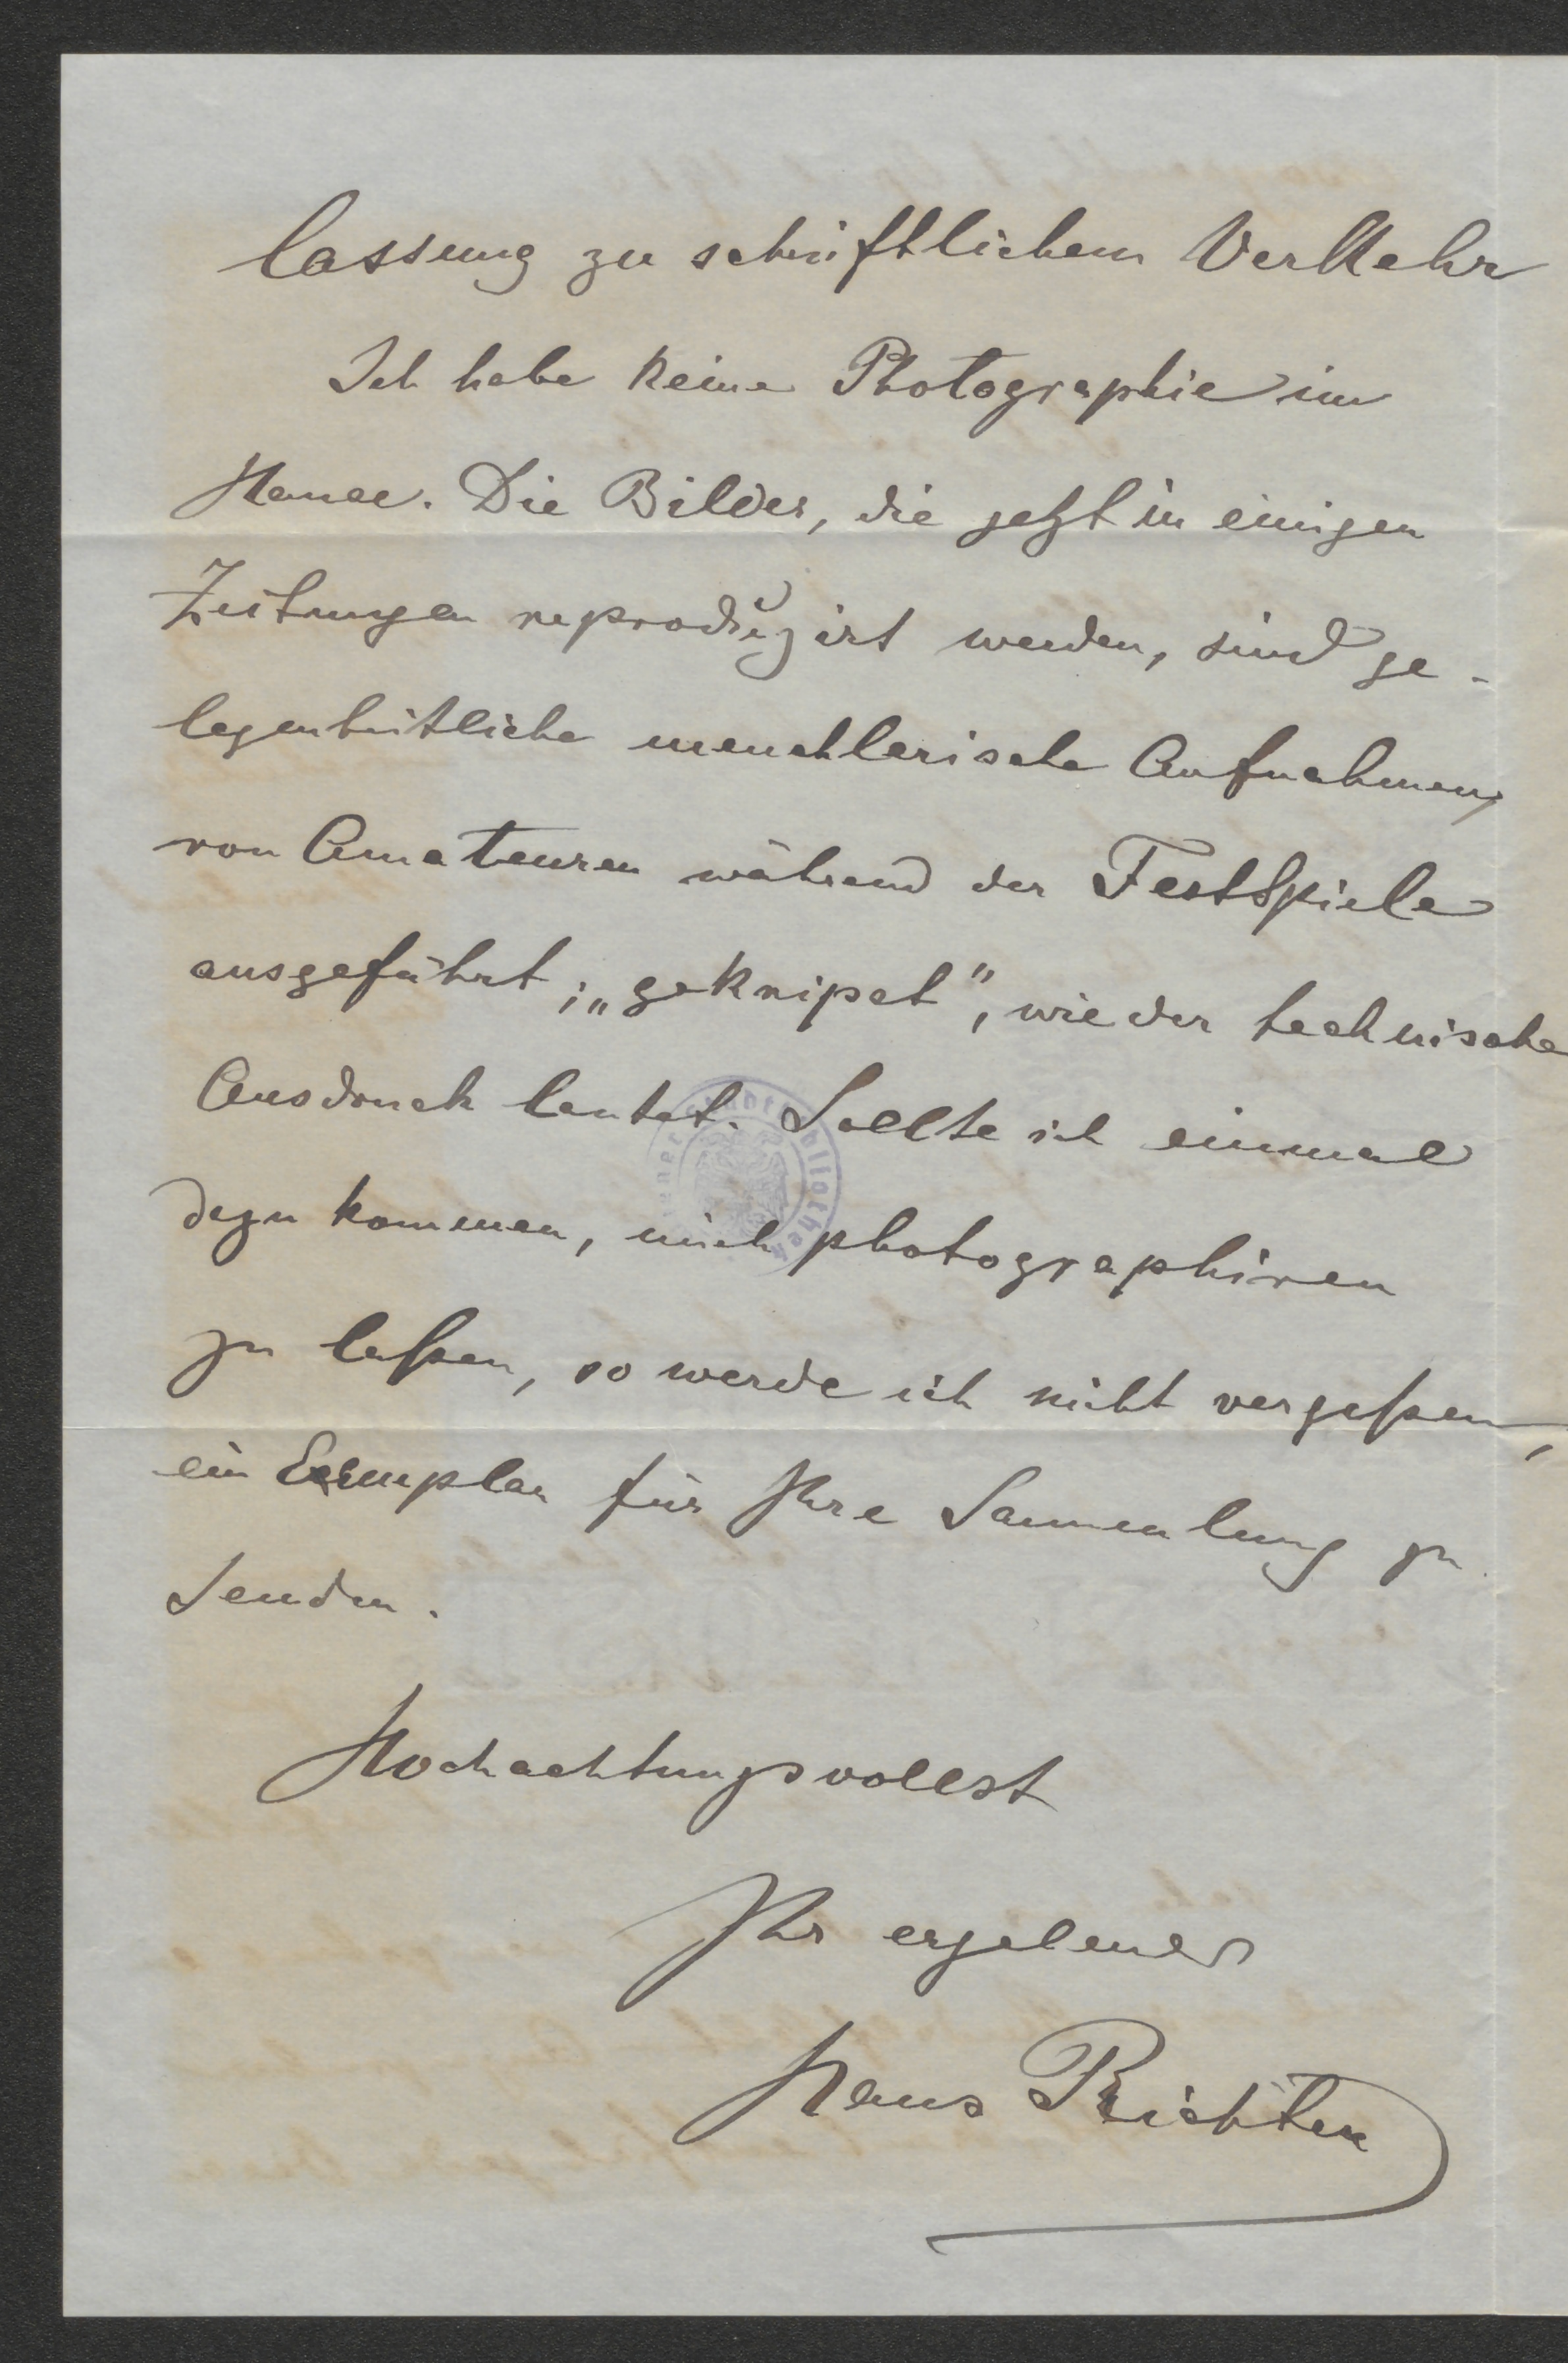 lassung zu schriftlichem Verkehr
Ich habe keine Photographie im
Hause. Die Bilder, die jetzt in einigen
Zeitungen reproduzirt werden, sind ge-
legentlitliche meuchlerische Aufnahmen,
von Amateuren während der FestSpiele
ausgeführt; „geknipst", wie der technische
Ausdruck lautet. Sollte ich einmal
dazu kommen, mich photographiren
zu laßen, so werde ich nicht vergeßen,
ein Exemplar für Ihre Sammlung zu
senden.
Hochachtungsvollst
Ihr ergebener
Hans Richter